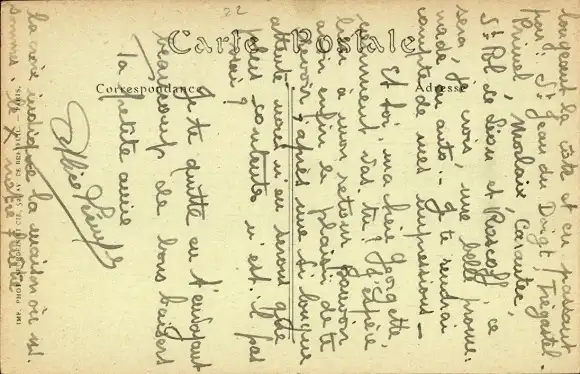 22
Carte Postale
Correspondance
Adresse
longeant la côte et en passant
par St Jean du Doigt, Trégastel
Primel, Morlaix, Carantec,
St Pol de Léon et Roscoff, ce
sera, je crois, une belle prome-
nade en auto. - Je te rendrai
compte de mes impressions -
Et toi, ma chère Georgette,
comment vas-tu? J'espère
bien à mon retour pouvoir
avoir enfin le plaisir de te
revoir, après une si longue
attente nous n'en serons que
plus contentes n'est-il pas
vrai?
Je te quitte en t'envoyant
beaucoup de bons baisers
Ta petite amie
la croix indique la maison où ns.
sommes, le X notre fenêtre
IMP. PHOT. NEURDEIN ET CIE, 52, AV. DE BRETEUIL. — PARIS.